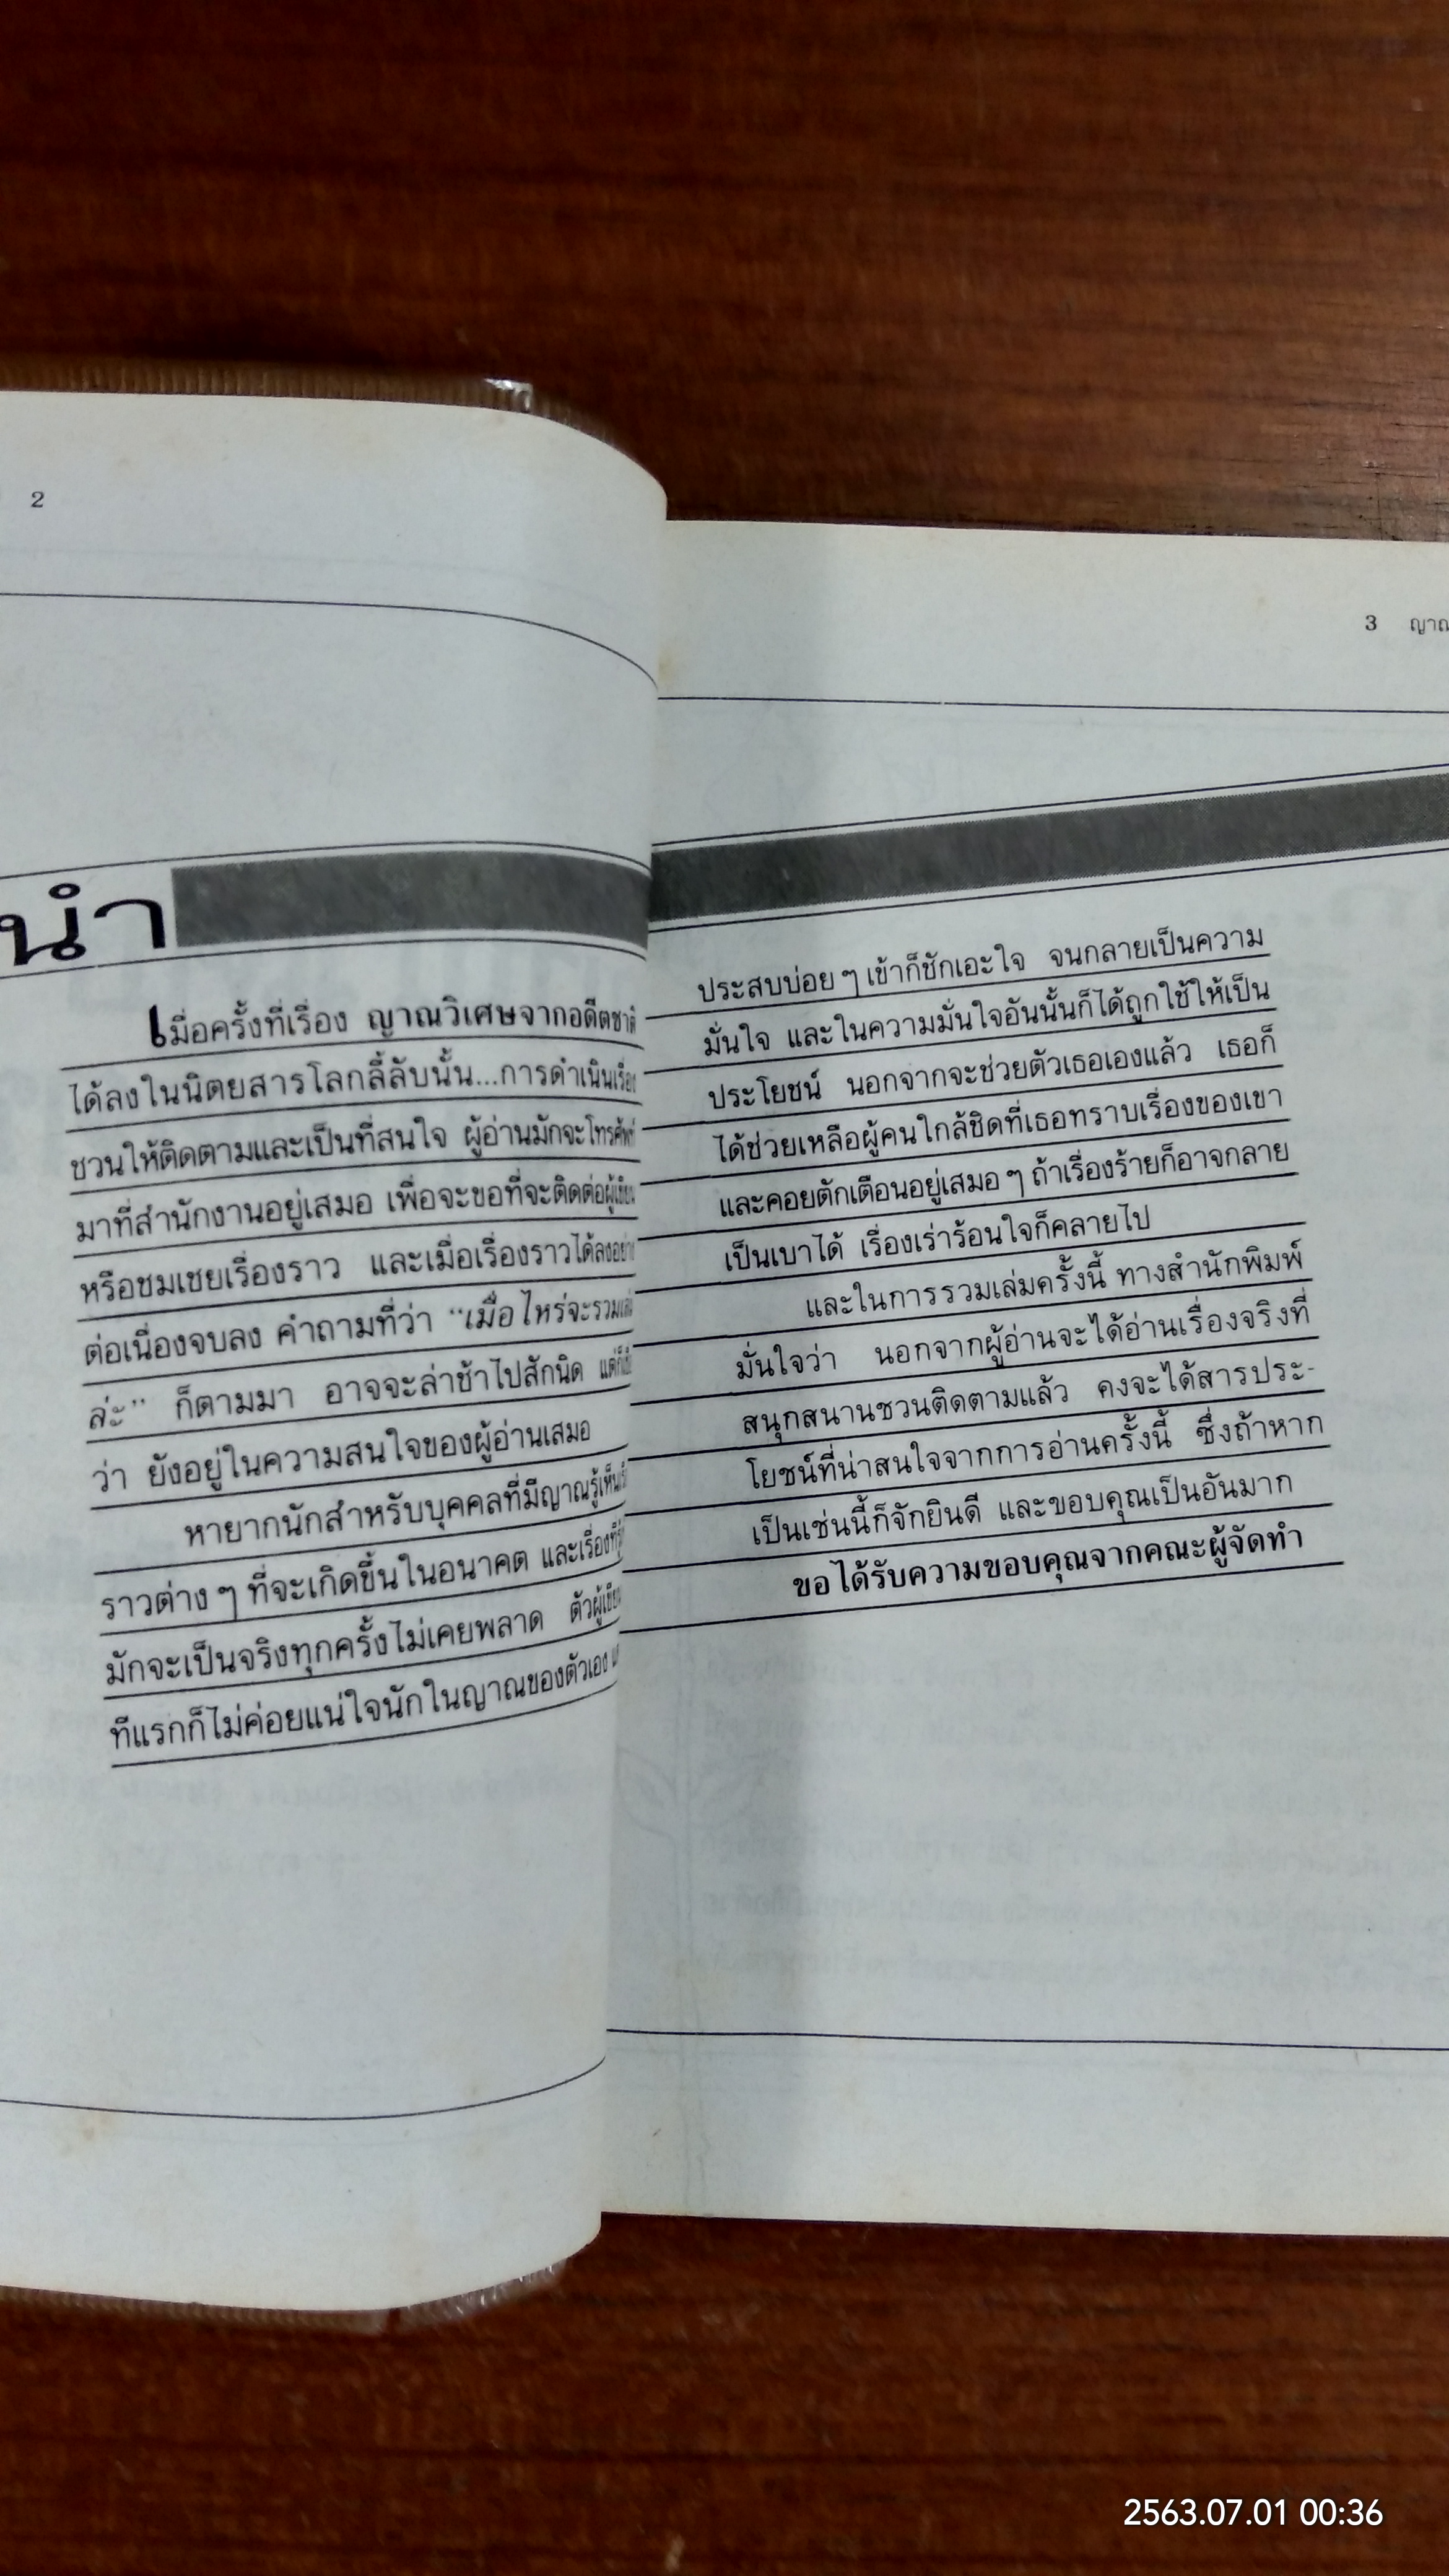 2
นำ
เมื่อครั้งที่เรื่อง ญาณวิเศษจากอดีตชาติ
ได้ลงในนิตยสารโลกลี้ลับนั้น...การดำเนินเรื่อง
ชวนให้ติดตามและเป็นที่สนใจ ผู้อ่านมักจะโทรศัพท์
มาที่สำนักงานอยู่เสมอ เพื่อจะขอที่จะติดต่อผู้เขียน
หรือชมเชยเรื่องราว และเมื่อเรื่องราวได้ลงอย่าง
ต่อเนื่องจบลง คำถามที่ว่า “เมื่อไหร่จะรวมเล่ม
ล่ะ” ก็ตามมา อาจจะล่าช้าไปสักนิด
ว่า ยังอยู่ในความสนใจของผู้อ่านเสมอ
หายากนักสำหรับบุคคลที่มีญาณรู้เห็น
ราวต่าง ๆ ที่จะเกิดขึ้นในอนาคต และเรื่องที่
มักจะเป็นจริงทุกครั้งไม่เคยพลาด ตัวผู้เขียน
ทีแรกก็ไม่ค่อยแน่ใจนักในญาณของตัวเอง
3 ญาณ
ประสบบ่อย ๆ เข้าก็ชักเอะใจ จนกลายเป็นความ
มั่นใจ และในความมั่นใจอันนั้นก็ได้ถูกใช้ให้เป็น
ประโยชน์ นอกจากจะช่วยตัวเธอเองแล้ว เธอก็
ได้ช่วยเหลือผู้คนใกล้ชิดที่เธอทราบเรื่องของเขา
และคอยตักเตือนอยู่เสมอ ๆ ถ้าเรื่องร้ายก็อาจกลาย
เป็นเบาได้ เรื่องเร่าร้อนใจก็คลายไป
และในการรวมเล่มครั้งนี้ ทางสำนักพิมพ์
มั่นใจว่า นอกจากผู้อ่านจะได้อ่านเรื่องจริงที่
สนุกสนานชวนติดตามแล้ว คงจะได้สารประ-
โยชน์ที่น่าสนใจจากการอ่านครั้งนี้ ซึ่งถ้าหาก
เป็นเช่นนี้ก็จักยินดี และขอบคุณเป็นอันมาก
ขอได้รับความขอบคุณจากคณะผู้จัดทำ
2563.07.01 00:36